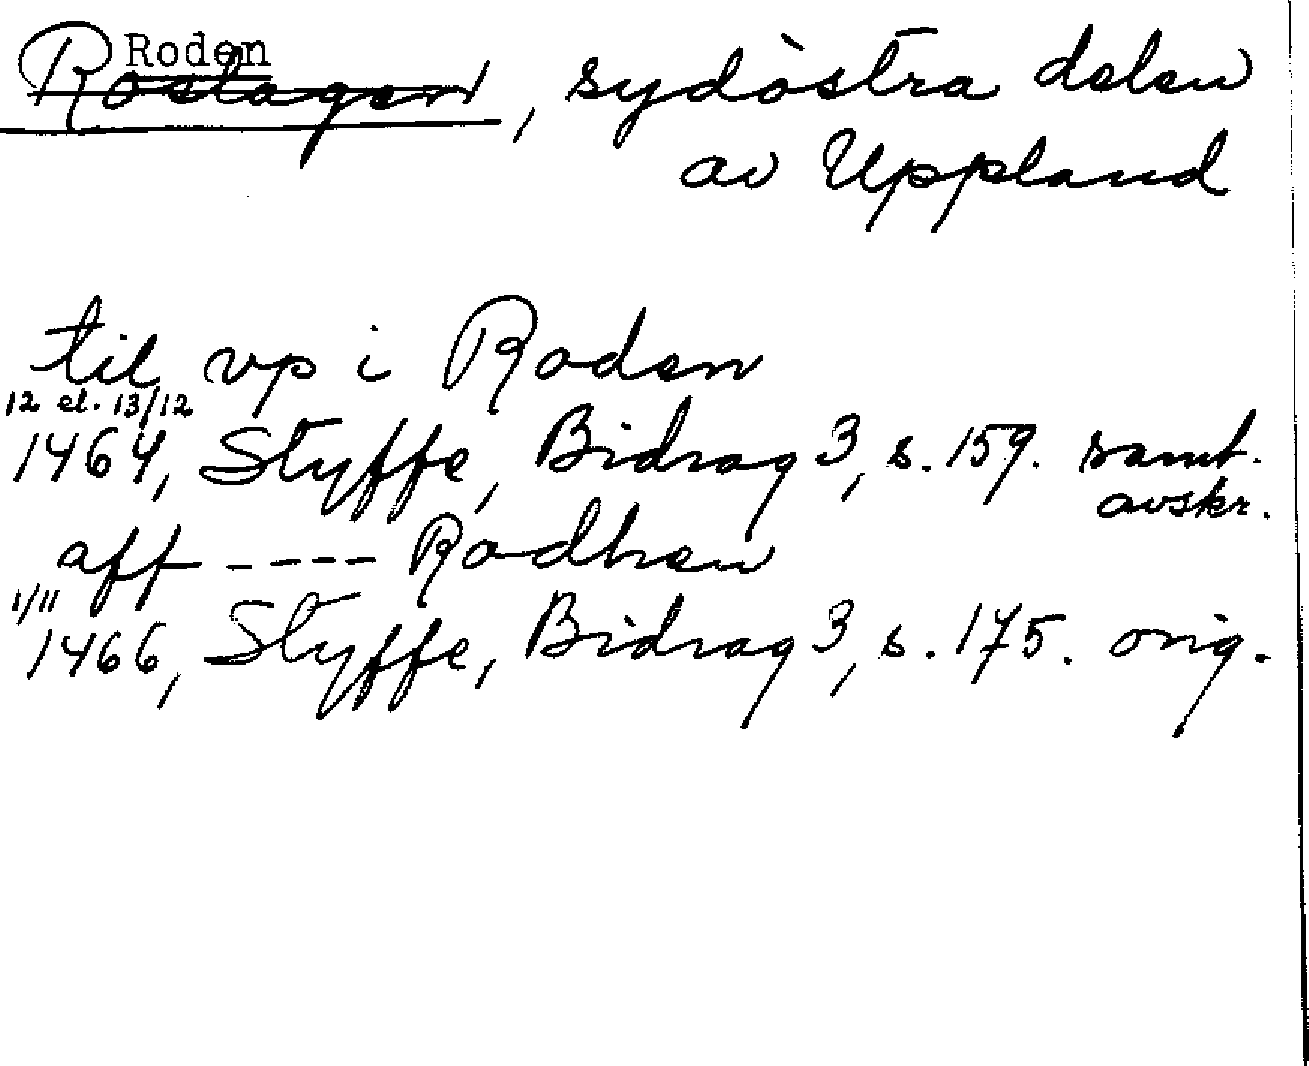 Roden
Roslagen, sydöstra delen
av Uppland
til vp i Roden
12 el. 13/12
1464, Styffe, Bidrag 3, s. 159. samt.
avskr.
aff ---- Rodhen
1/11
1466, Styffe, Bidrag 3, s. 175. orig.